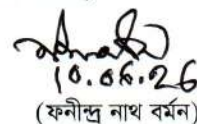 10.06.26
(ফনীন্দ্র নাথ বর্মন)